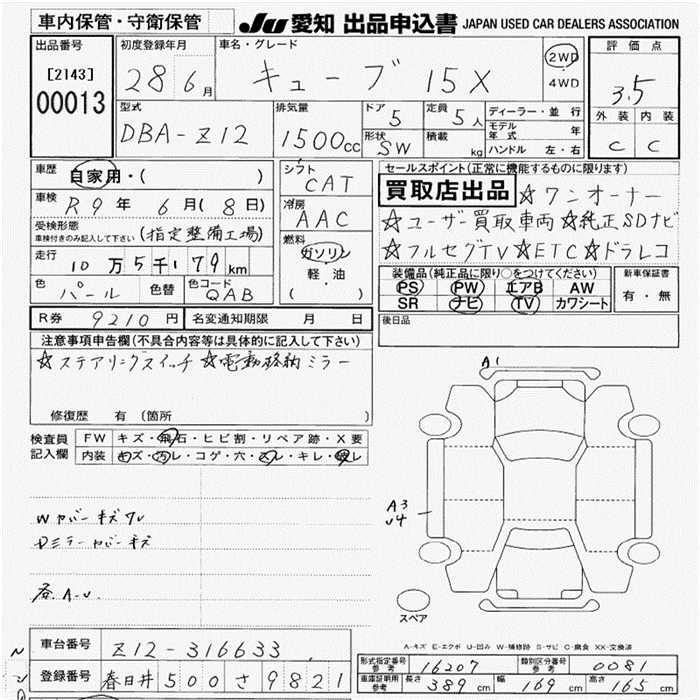 車内保管・守衛保管 JU 愛知 出品申込書 JAPAN USED CAR DEALERS ASSOCIATION
出品番号 初度登録年月 車名・グレード 評価点
[2143] 28 6月 キューブ 15X 2WD 3.5
00013 4WD
外装 内装
型式 排気量 ドア 5 定員 5人 ディーラー・並行
DBA-Z12 1500cc 形状 SW 積載 kg モデル年式 年
ハンドル 左・右 C C
車歴 自家用・( ) シフト CAT セールスポイント(正常に機能するものに限ります)
車検 R9年 6月(8日) 冷房 AAC 買取店出品 ☆ワンオーナー
受検形態 車検付きのみ記入して下さい (指定整備工場) ☆ユーザー買取車両 ☆純正SDナビ
燃料 ガソリン ☆フルセグTV ☆ETC ☆ドラレコ
走行 10万5千179km 軽・油 装備品(純正品に限り○をつけてください) 新車保証書
色 パール 色替 色コード QAB ( ) PS PW エアB AW 有・無
SR ナビ TV カワシート
R券 9210円 名変通知期限 月 日 後日品
注意事項申告欄(不具合内容等は具体的に記入して下さい)
☆ステアリングスイッチ ☆電動格納ミラー A1
修復歴 有(箇所 )
検査員 FW キズ・飛石・ヒビ割・リペア跡・X要
記入欄 内装 キズ・汚レ・コゲ・穴・スレ・キレ・破レ
Wカバーキズワレ A3
Dミラーカバーキズ
A-U
スペア
A-キズ E-エクボ U-凹み W-補修跡 S-サビ C-腐食 XX-交換済
車台番号 Z12-316633
形式指定番号 参考 16207 類別区分番号 参考 0081
登録番号 春日井 500 さ 9821 車庫証明用 参考 長さ 389cm 幅 169cm 高さ 165cm